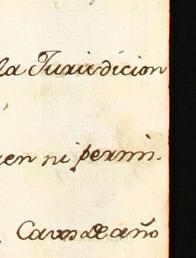 la Jurisdicion
en ni permi.
Cavos de año